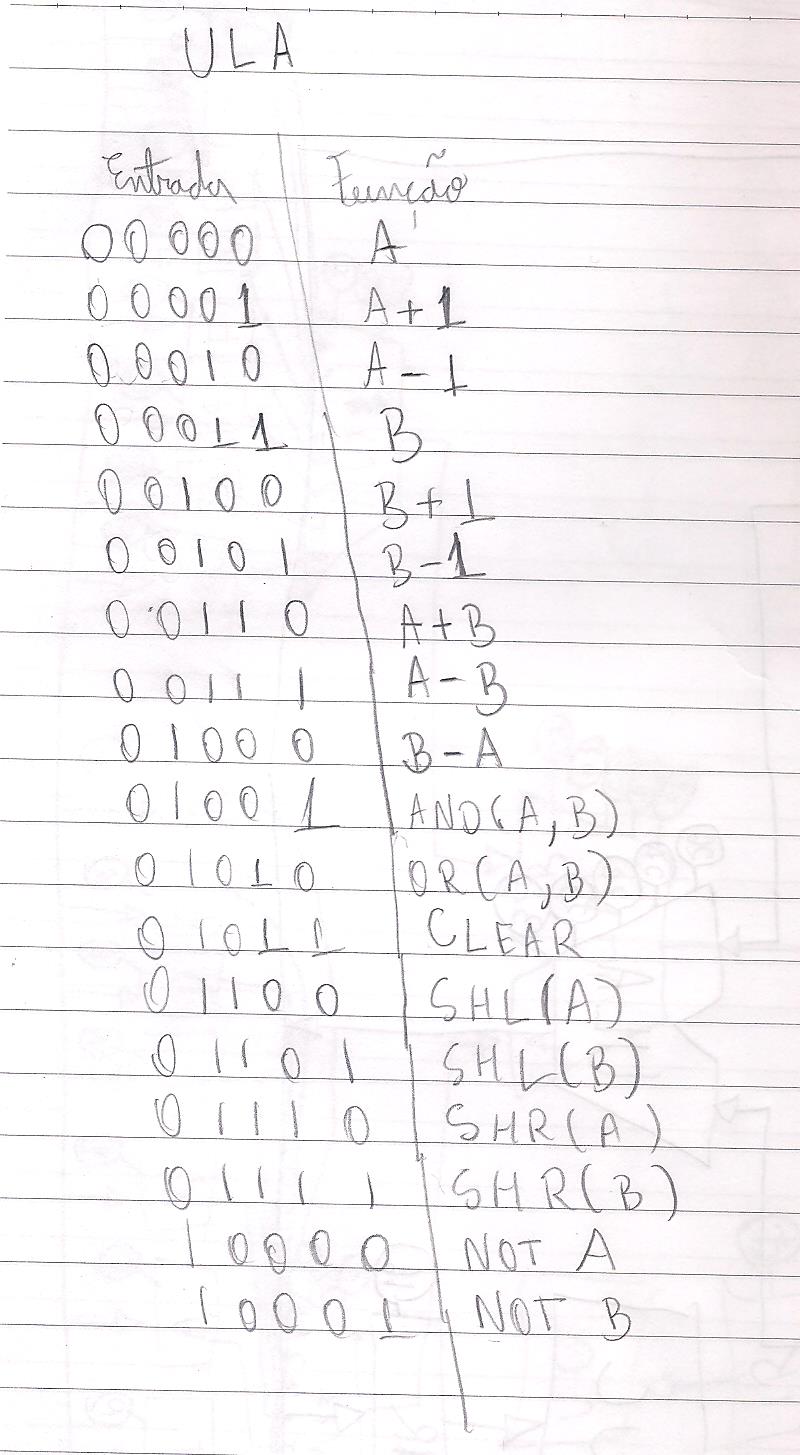 ULA
Entrada Função
00000 A
00001 A+1
00010 A-1
00011 B
00100 B+1
00101 B-1
00110 A+B
00111 A-B
01000 B-A
01001 AND(A,B)
01010 OR(A,B)
01011 CLEAR
01100 SHL(A)
01101 SHL(B)
01110 SHR(A)
01111 SHR(B)
10000 NOT A
10001 NOT B